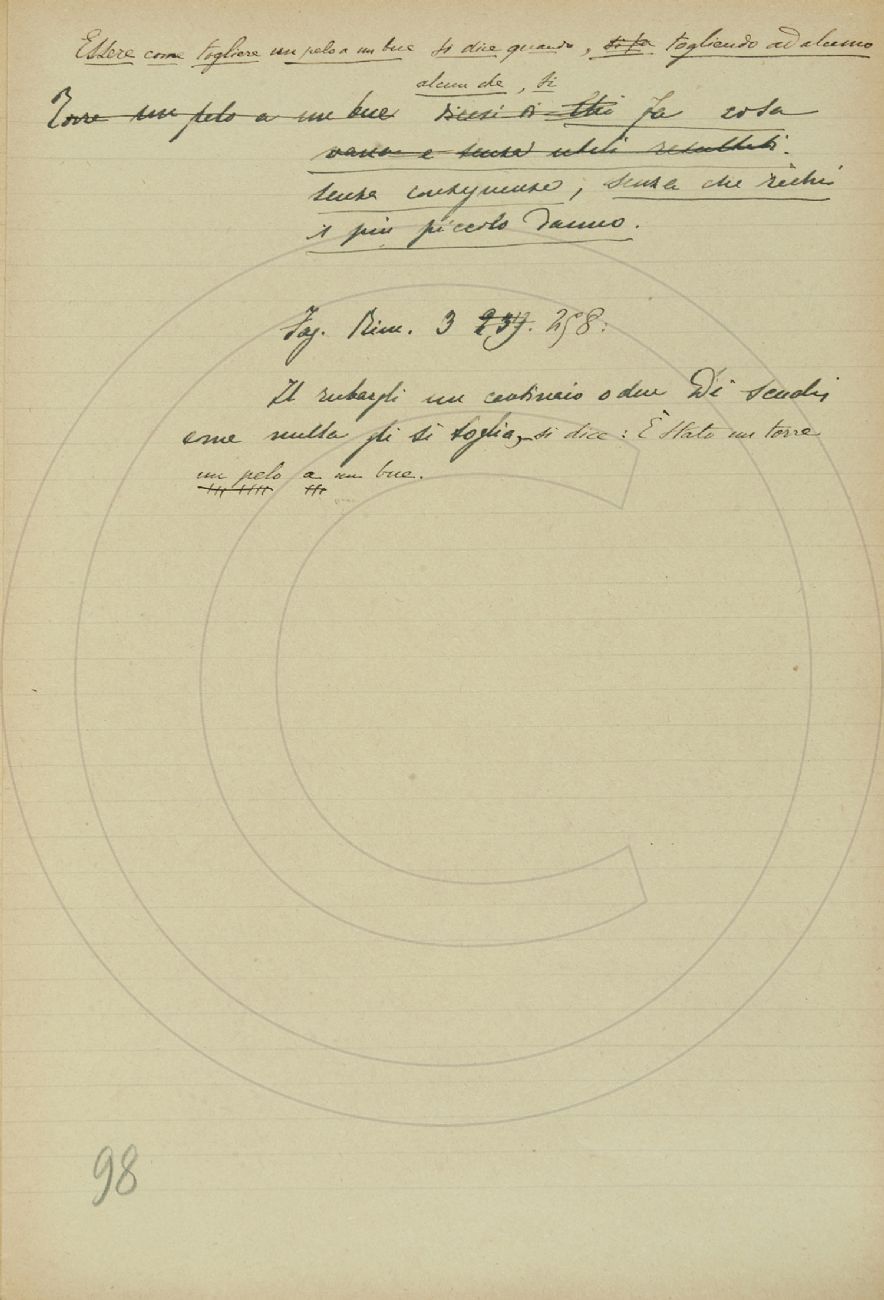 Essere come togliere un pelo a un bue si dice quando, si fa togliendo ad alcuno
alcun che, si
Torre un pelo a un bue dicesi di Chi fa cosa
vana e senza utili resultati.
senza conseguenze, senza che rechi
il più piccolo danno.
Fag. Rim. 3 237. 258:
Il rubargli un centinaio o due Di scudi,
come nulla gli si toglia, si dice: È stato un torre
un pelo a un bue.
98